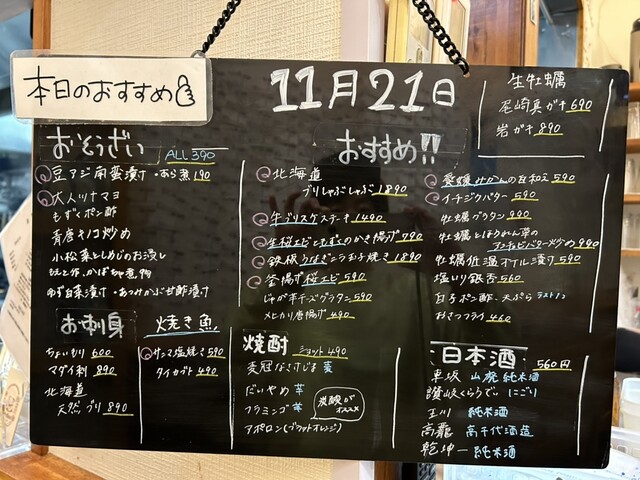 本日のおすすめ
11月21日
生牡蠣
尾崎真ガキ 690
岩ガキ 890
おそうざい ALL 390
豆アジ南蛮漬け・あら煮 190
大人ツナマヨ
もずくポン酢
青唐キノコ炒め
小松菜としめじのお浸し
かぼちゃ煮物
ゆず白菜漬け・あつみかぶ甘酢漬け
おすすめ!!
北海道
ブリしゃぶしゃぶ 1890
牛ぶりスケステーキ 1490
生桜エビとねぎのかき揚げ 790
鉄板うなぎニラ玉子焼き 1890
釜揚げ桜エビ 590
じゃが芋チーズグラタン 590
メヒカリ唐揚げ 490
愛媛みかんの白和え 590
イチジクバター 590
牡蠣グラタン 990
牡蠣とほうれん草の
アンチョビバターソテー 990
牡蠣佐温オイル漬け 590
塩いり銀杏 560
白子ポン酢、天ぷら ラスト
おさつフライ 460
お刺身
ちょいもり 600
マダイ刺 890
北海道
天然ブリ 890
焼き魚
サンマ塩焼き 590
タイカブト 490
焼酎 ショット 490
麦冠なさけしま 麦
だいやめ 芋
フラミンゴ 芋
アポロン(ブラッドオレンジ)
炭酸が
オススメ
日本酒 560円
車坂 山廃純米酒
讃岐くらうでぃ にごり
玉川 純米酒
高龗 高千代酒造
乾坤一 純米酒